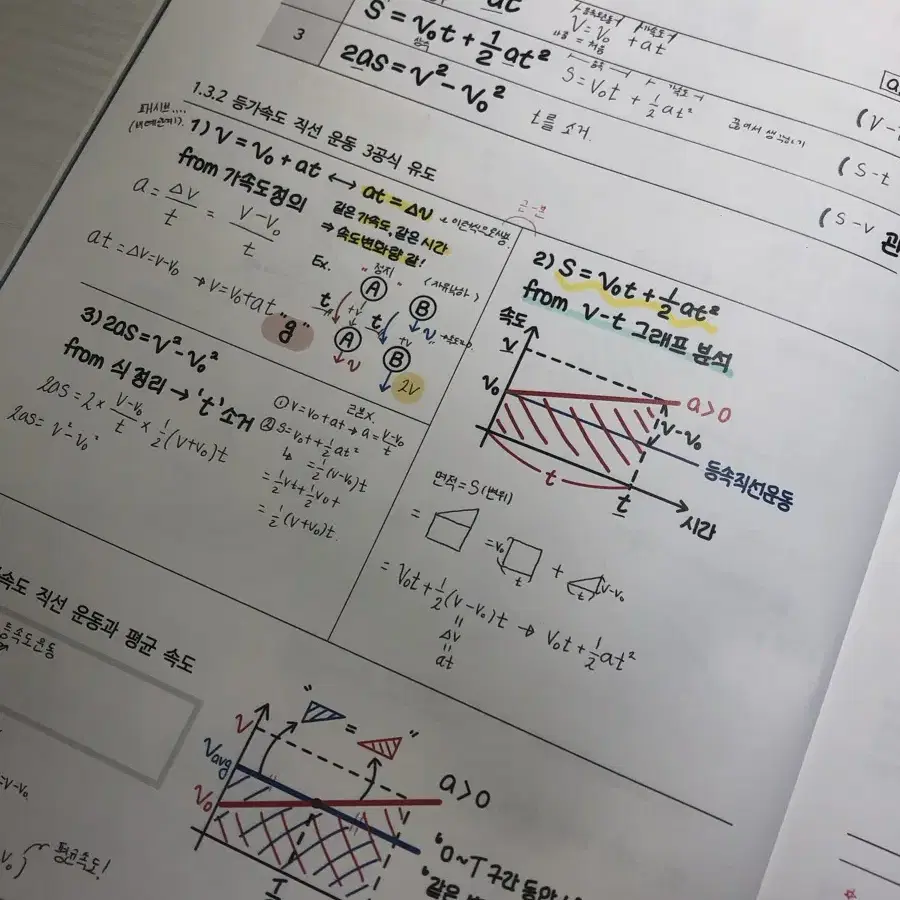 at
V=V₀ +at
3
S=V₀t+½at²
S=V₀t+½at²
2as=V²-V₀²
t를 소거
(V-
(S-t
(S-v 관
1.3.2 등가속도 직선 운동 3공식 유도
1) V=V₀+at ↔ at=ΔV
from 가속도정의
같은 가속도, 같은 시간
⇒ 속도변화량 같!
a=Δv/t=(V-V₀)/t
at=ΔV=V-V₀ →V=V₀+at
"g"
Ex.
"정지"
(자유낙하)
A
B
t
+v
t
+v
A
B
v
v
2V
3) 2as=V²-V₀²
from 식 정리→'t'소거
2as=2×(V-V₀)/t×½(V+V₀)t
2as=V²-V₀²
① V=V₀+at→a=(V-V₀)/t
② S=V₀t+½at²
=½(V-V₀)t
=½Vt+½V₀t
=½(V+V₀)t.
2) S=V₀t+½at²
from V-t 그래프 분석
속도
V
V₀
a>0
V-V₀
등속직선운동
t
t
시간
면적=S(변위)
=
=V₀
t
+
t
V-V₀
=V₀t+½(V-V₀)t → V₀t+½at²
=
ΔV
=
at
속도 직선 운동과 평균 속도
등속도운동
=V-V₀
V₀
평균속도!
" = "
V
Vavg
V₀
a>0
T
"0~T 구간 동안
"같은